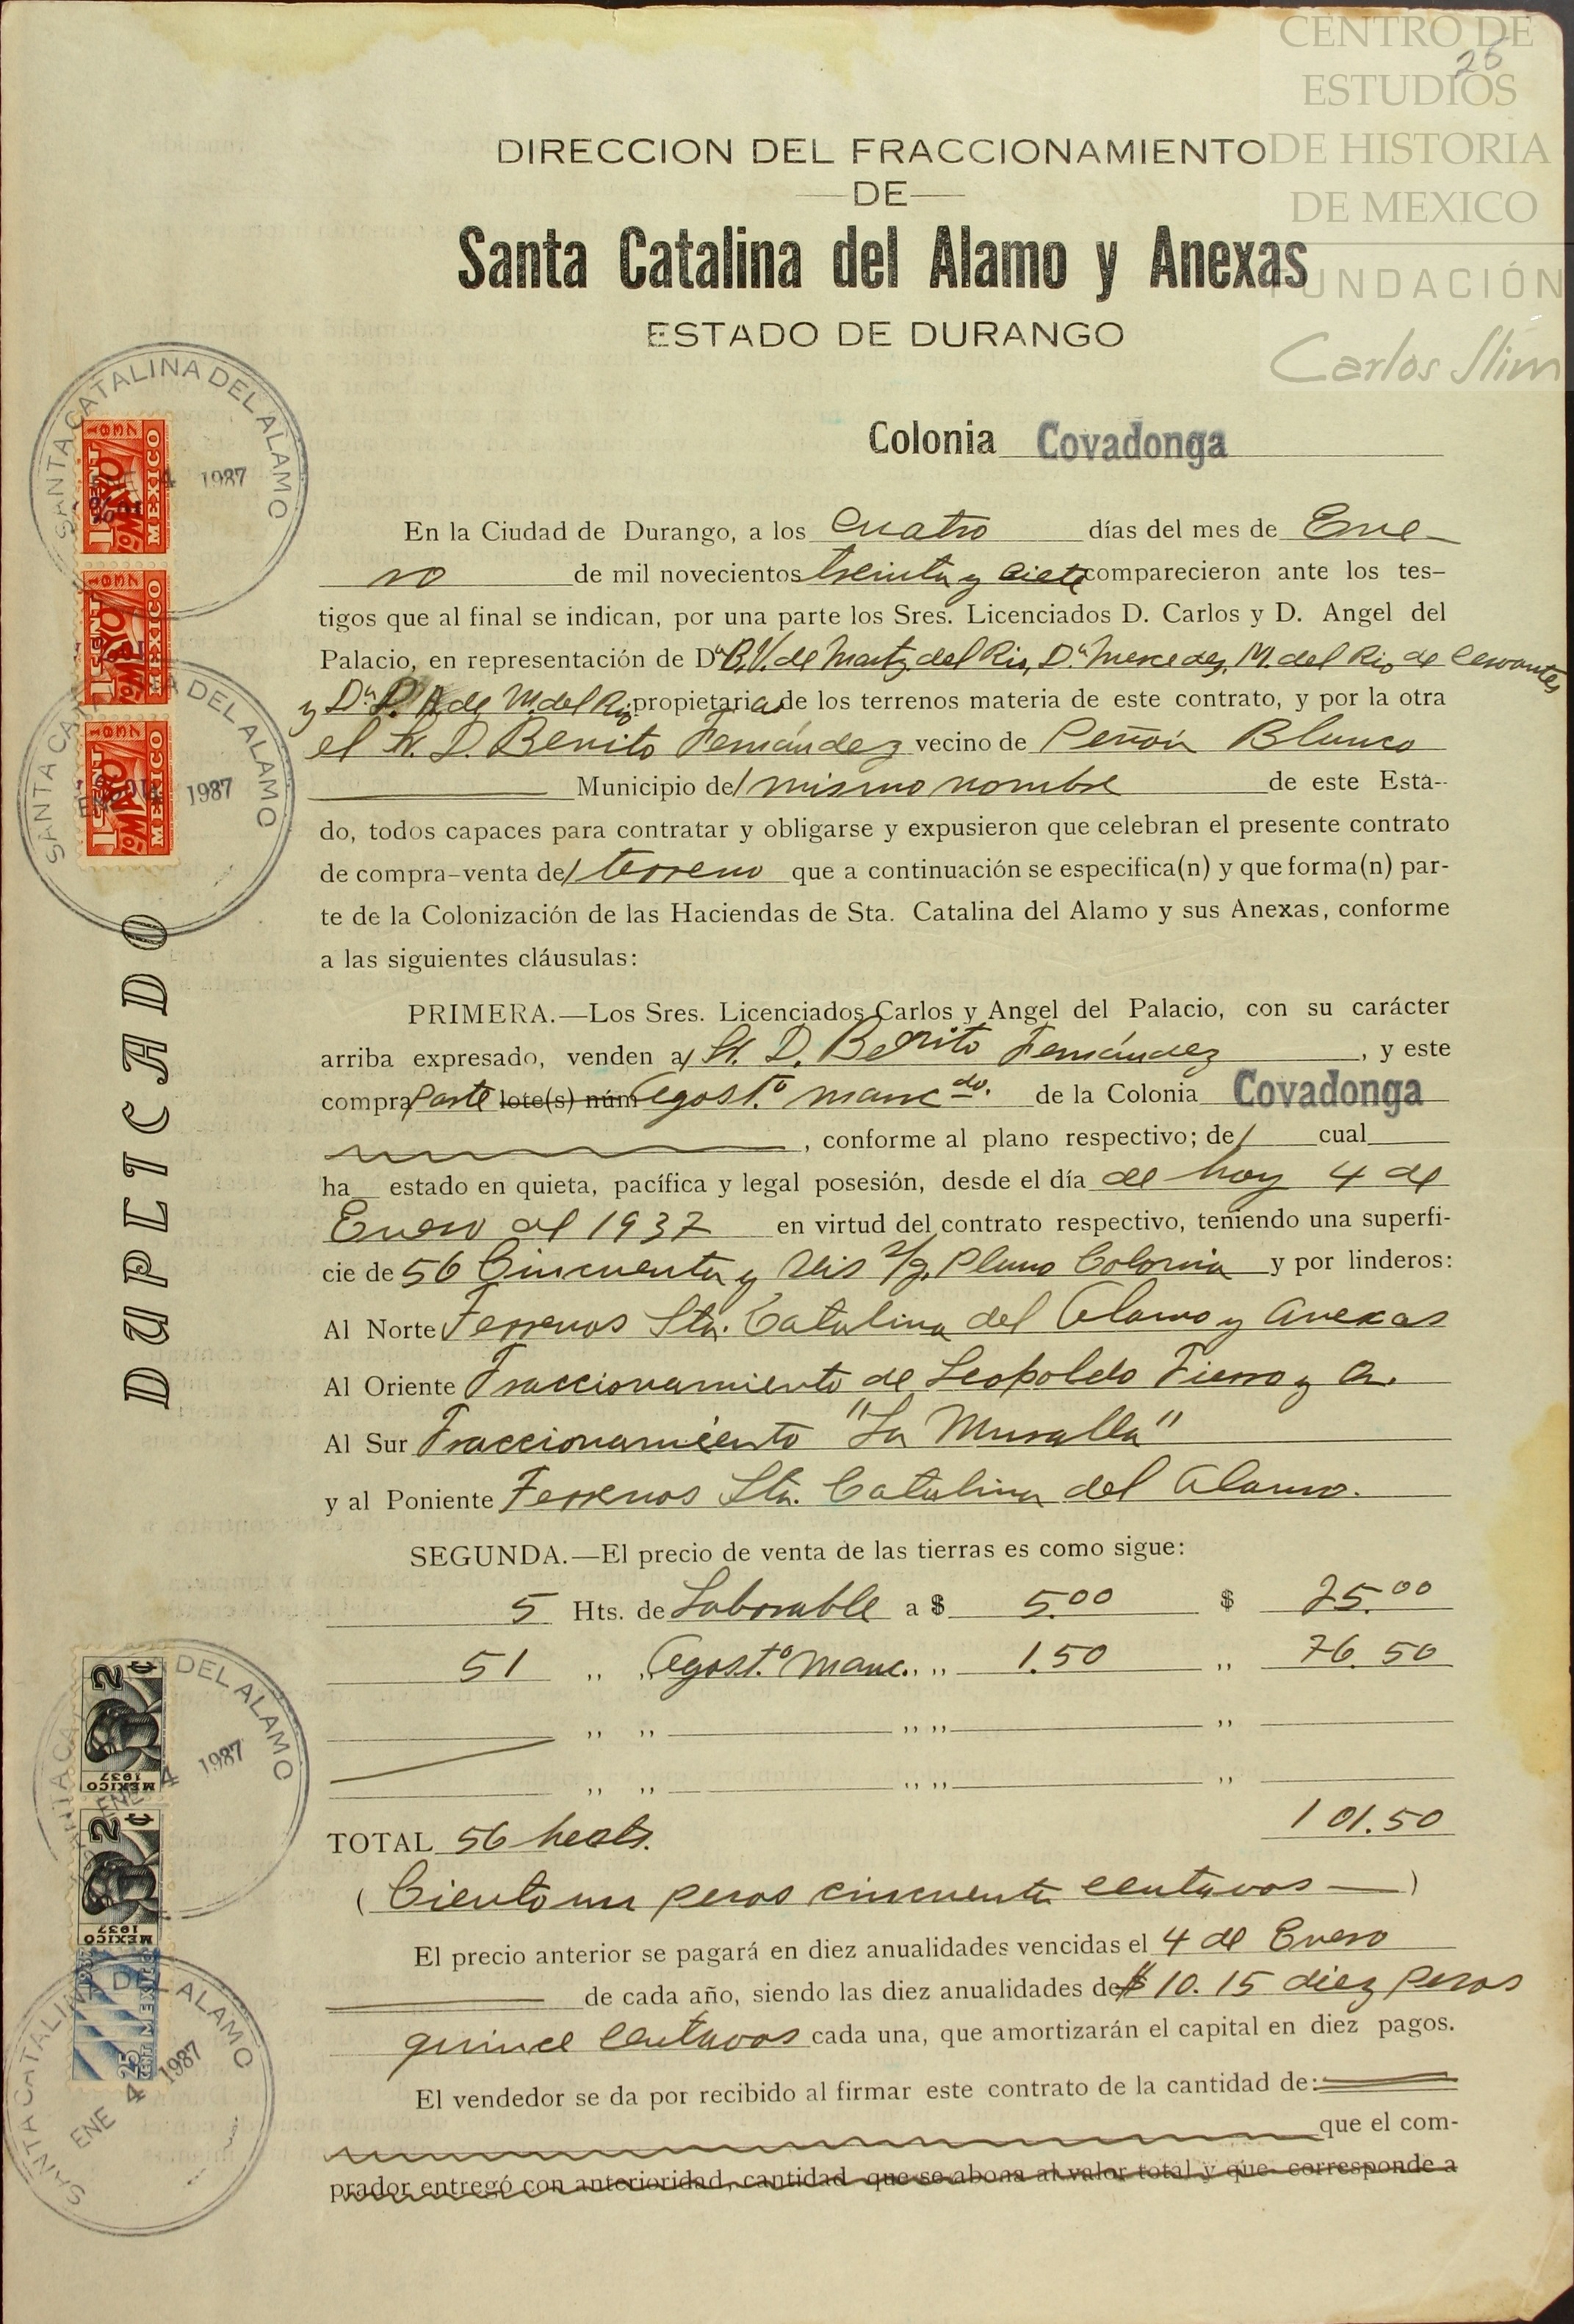 CENTRO DE
ESTUDIOS
DE HISTORIA
DE MEXICO
FUNDACIÓN
Carlos Slim
26
DIRECCION DEL FRACCIONAMIENTO
DE
Santa Catalina del Alamo y Anexas
ESTADO DE DURANGO
Colonia Covadonga
En la Ciudad de Durango, a los Cuatro días del mes de Ene-
ro de mil novecientos treinta y siete comparecieron ante los tes-
tigos que al final se indican, por una parte los Sres. Licenciados D. Carlos y D. Angel del
Palacio, en representación de Dª B. V. de Martz. del Rio, Dª Mercedes M. del Rio de Cervantes
y Dª D. A de M. del Rio propietarias de los terrenos materia de este contrato, y por la otra
el Sr. D. Benito Fernández vecino de Peñón Blanco
Municipio del mismo nombre de este Esta-
do, todos capaces para contratar y obligarse y expusieron que celebran el presente contrato
de compra-venta del terreno que a continuación se especifica(n) y que forma(n) par-
te de la Colonización de las Haciendas de Sta. Catalina del Alamo y sus Anexas, conforme
a las siguientes cláusulas:
PRIMERA.—Los Sres. Licenciados Carlos y Angel del Palacio, con su carácter
arriba expresado, venden al Sr. D. Benito Fernández, y este
compra parte lote(s) núm Agost.º mancdo. de la Colonia Covadonga
, conforme al plano respectivo; del cual
ha estado en quieta, pacífica y legal posesión, desde el día de hoy 4 de
Enero de 1937 en virtud del contrato respectivo, teniendo una superfi-
cie de 56 Cincuenta y seis Plano Colonia y por linderos:
Al Norte Terrenos Sta. Catalina del Alamo y Anexas
Al Oriente Fraccionamiento de Leopoldo Fierro y A.
Al Sur Fraccionamiento "La Muralla"
y al Poniente Terrenos Sta. Catalina del Alamo.
SEGUNDA.—El precio de venta de las tierras es como sigue:
5 Hts. de Laborable a $ 5.00 $ 25.00
51 ,, ,, Agost.º manc. ,, ,, 1.50 ,, 76.50
,, ,, ,, ,, ,,
,, ,, ,, ,, ,,
TOTAL 56 hects. 101.50
(Ciento un pesos cincuenta centavos —)
El precio anterior se pagará en diez anualidades vencidas el 4 de Enero
de cada año, siendo las diez anualidades de $ 10.15 diez pesos
quince centavos cada una, que amortizarán el capital en diez pagos.
El vendedor se da por recibido al firmar este contrato de la cantidad de:
que el com-
prador entregó con anterioridad, cantidad que se abona al valor total y que corresponde a
DUPLICADO
SANTA CATALINA DEL ALAMO
4 1937
1937
1 CENT
1o MAYO
MEXICO
1937
1 CENT
1o MAYO
MEXICO
1937
1 CENT
1o MAYO
MEXICO
SANTA CA DEL ALAMO
1937
2 ¢
MEXICO
1937
DEL ALAMO
ENE 4 1937
2 ¢
MEXICO
1937
25
MEXICO
SANTA CATALINA DEL ALAMO
ENE 4 1937